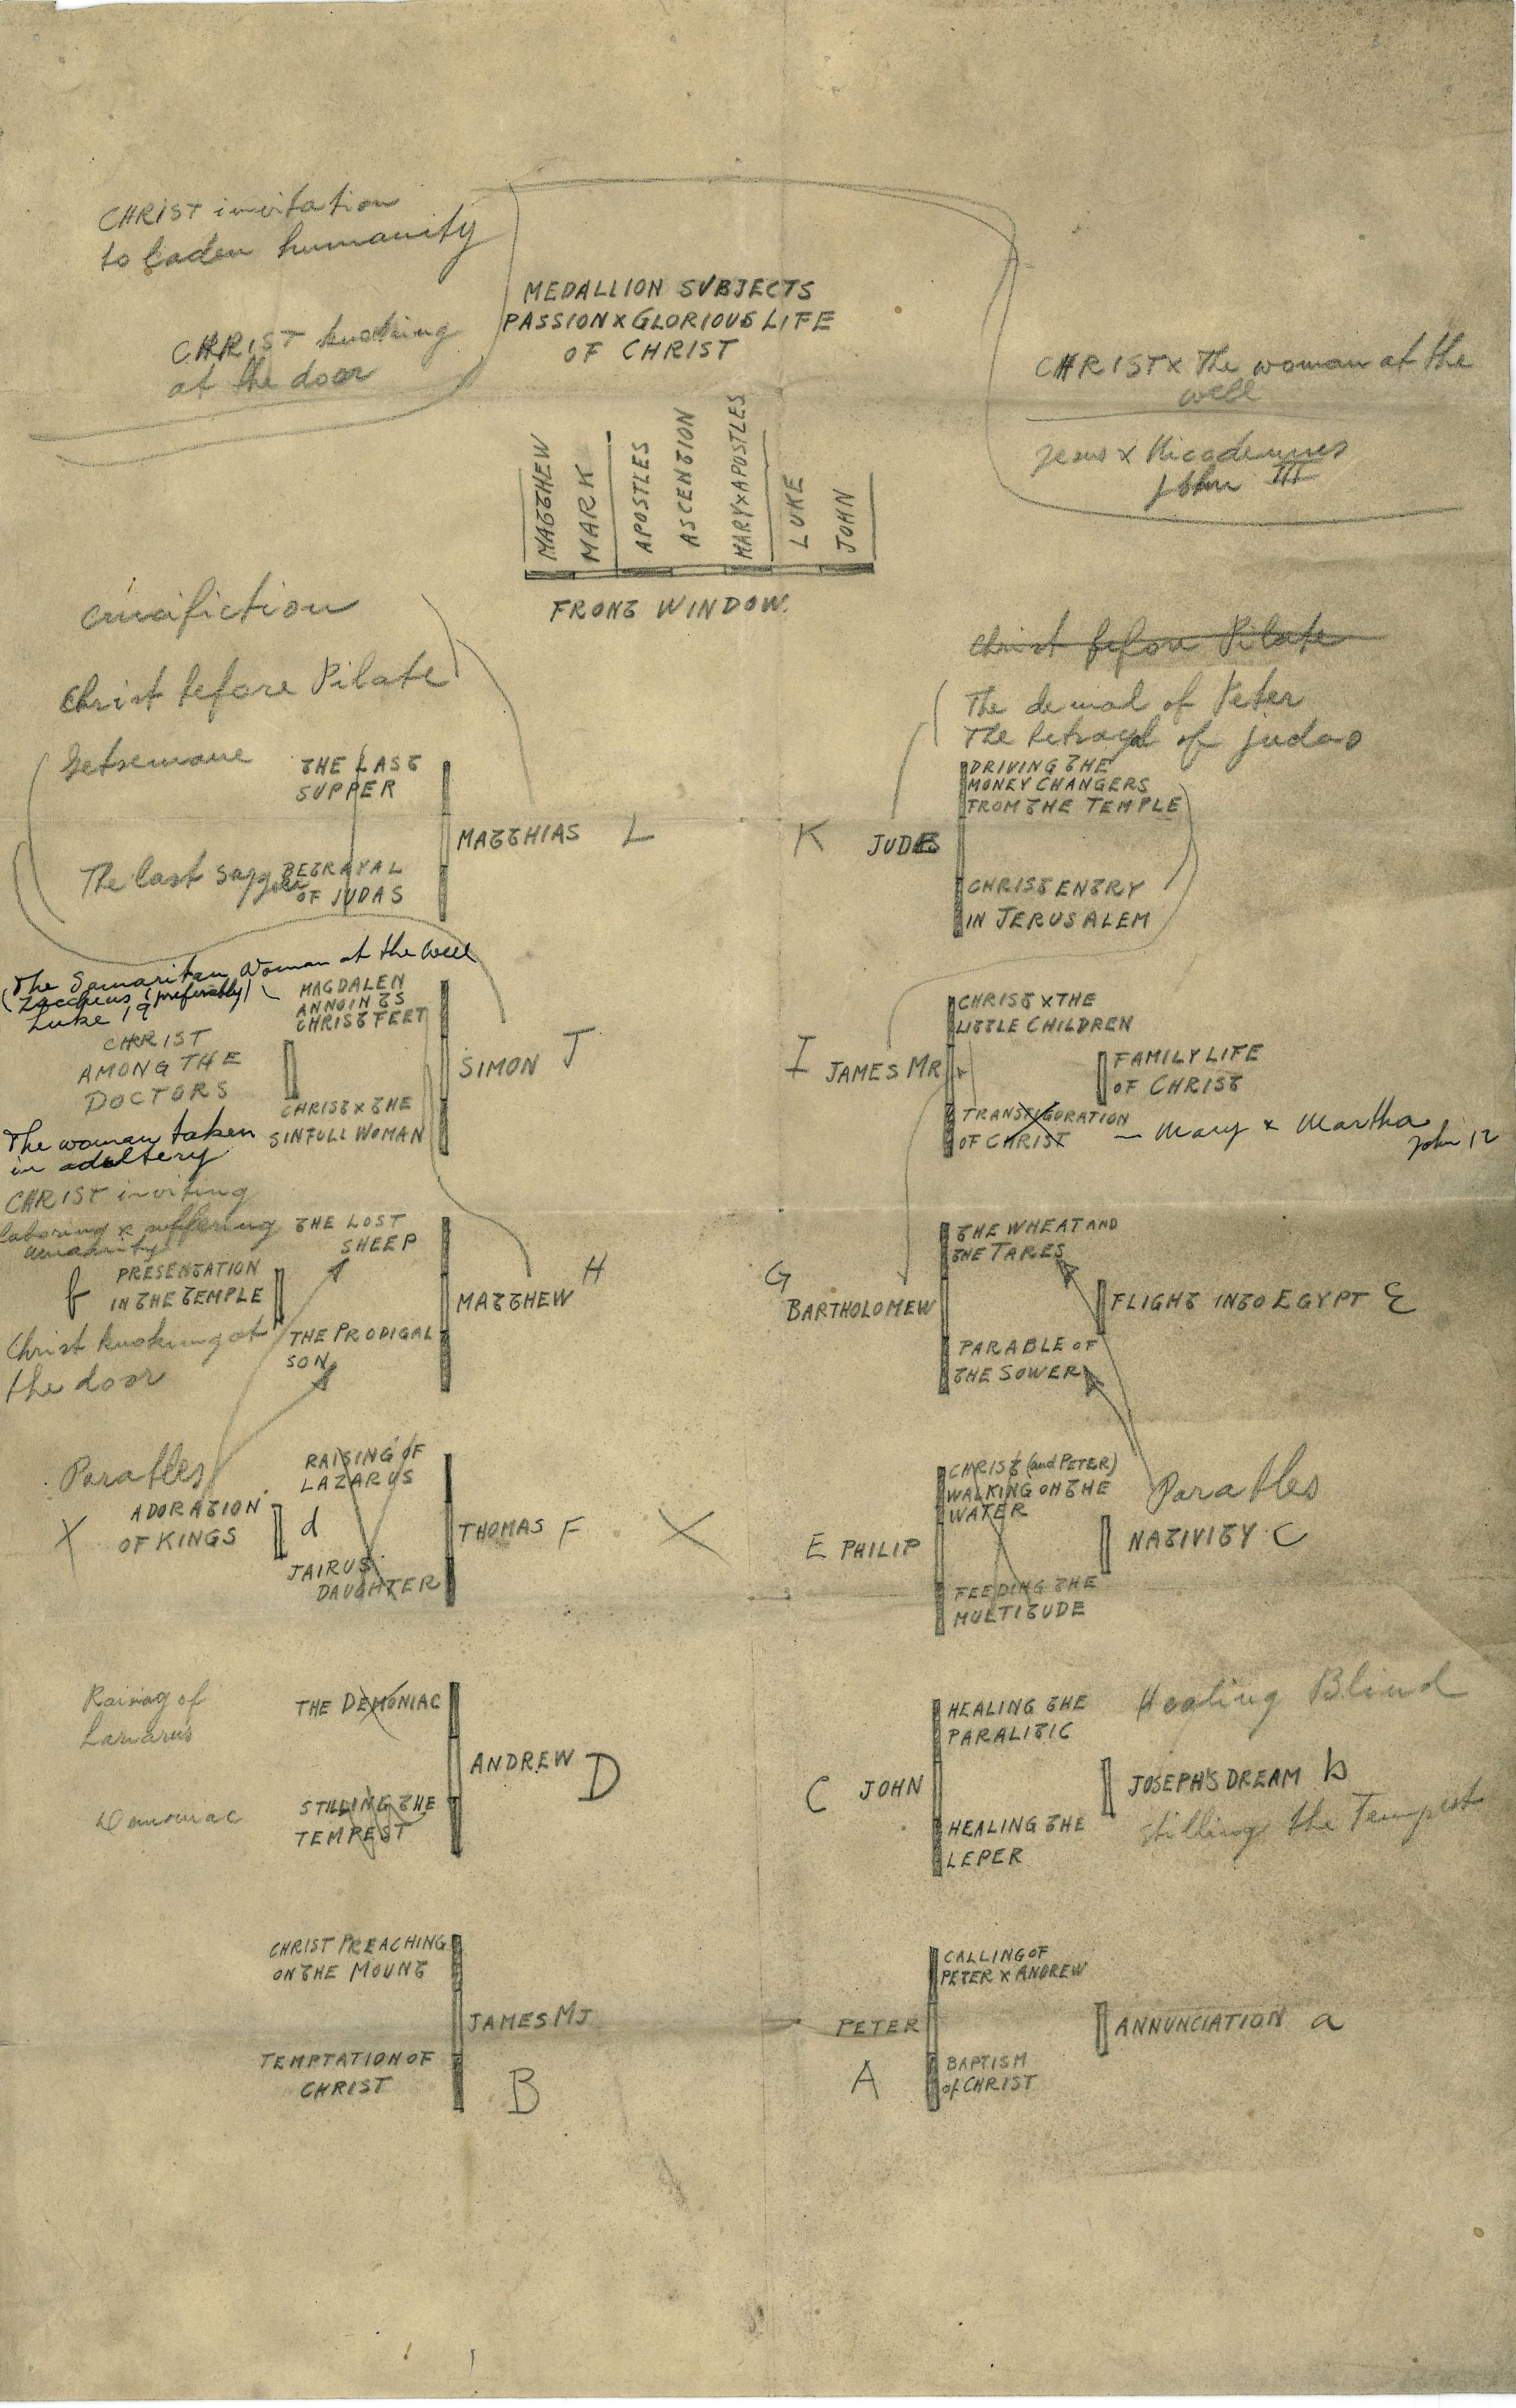 CHRIST invitation
to laden humanity
CHRIST knocking
at the door
MEDALLION SUBJECTS
PASSION x GLORIOUS LIFE
OF CHRIST
CHRIST x The woman at the
well
Jesus x Nicodemus
John III
MATTHEW
MARK
APOSTLES
ASCENTION
MARY x APOSTLES
LUKE
JOHN
FRONT WINDOW.
Crucifiction
Christ before Pilate
Getsemane
THE LAST
SUPPER
The last supper
BETRAYAL
OF JUDAS
MATTHIAS L
Christ before Pilate
The denial of Peter
The betrayal of judas
DRIVING THE
MONEY CHANGERS
FROM THE TEMPLE
K JUDE
CHRIST ENTRY
IN JERUSALEM
The Samaritan Woman at the well
(Zaccheus (preferably)
Luke 19
MAGDALEN
ANNOINTS
CHRIST FEET
CHRIST
AMONG THE
DOCTORS
SIMON J
CHRIST x THE
SINFULL WOMAN
The woman taken
in adultery
CHRIST x THE
LITTLE CHILDREN
I JAMES MR
FAMILY LIFE
OF CHRIST
TRANSFIGURATION
OF CHRIST
- Mary x Martha
John 12
CHRIST inviting
laboring x suffering
umanity
THE LOST
SHEEP
f PRESENTATION
IN THE TEMPLE
MATTHEW H
Christ knocking at
the door
THE PRODIGAL
SON
THE WHEAT AND
THE TARES
G
BARTHOLOMEW
FLIGHT INTO EGYPT E
PARABLE OF
THE SOWER
Parables
RAISING OF
LAZARUS
X ADORATION
OF KINGS
d
THOMAS F X
JAIRUS
DAUGHTER
CHRIST (and PETER)
WALKING ON THE
WATER
Parables
E PHILIP
NATIVITY C
FEEDING THE
MULTITUDE
Raising of
Lazarus
THE DEMONIAC
ANDREW D
Demoniac
STILLING THE
TEMPEST
HEALING THE
PARALITIC
Healing Blind
C JOHN
JOSEPH'S DREAM b
Stilling the Tempest
HEALING THE
LEPER
CHRIST PREACHING
ON THE MOUNT
JAMES MJ
TEMPTATION OF
CHRIST
B
CALLING OF
PETER x ANDREW
PETER
ANNUNCIATION a
A
BAPTISM
of CHRIST